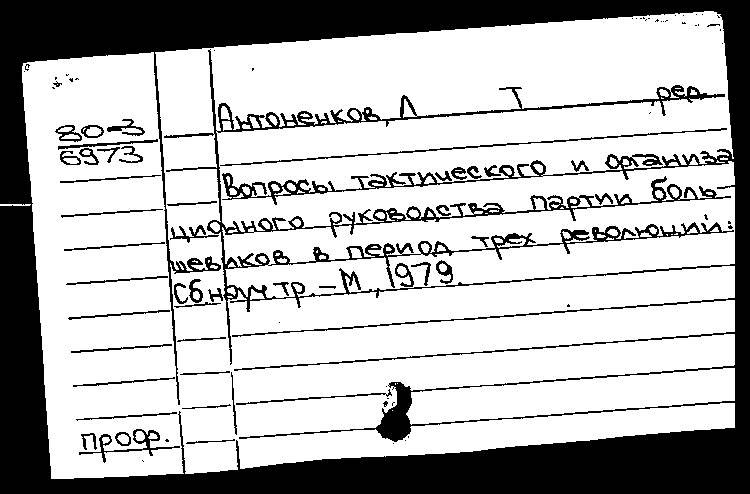 Антоненков, Л Т ,ред.
80-3
6973
Вопросы тактического и организа
ционного руководства партии боль-
шевиков в период трех революций:
Сб.науч.тр.-М.,1979.
проф.